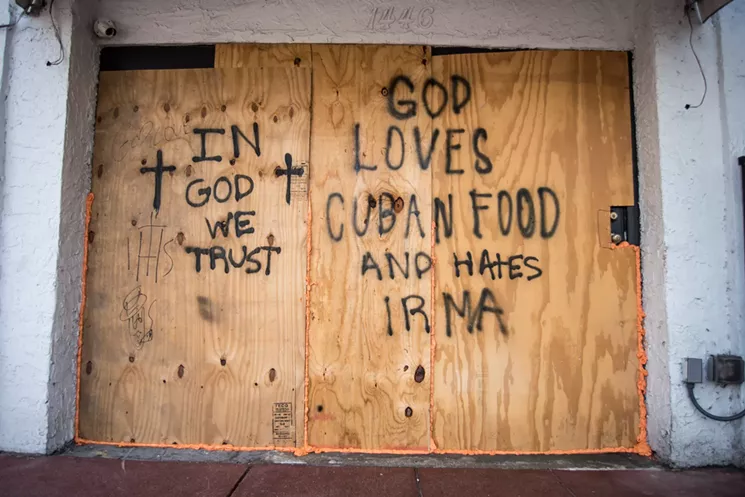 1446
IN
GOD
WE
TRUST
IHS
GOD
LOVES
CUBAN FOOD
AND HATES
IRMA